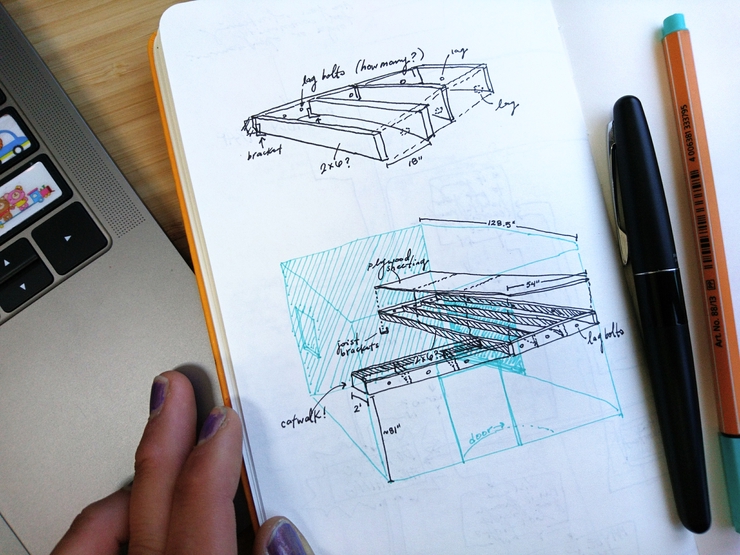 lag bolts (how many?)
lag
lag
bracket
2x6?
18"
128.5"
plywood sheeting
54"
joist
brackets
2x6?
lag bolts
catwalk!
2'
~81"
door
4 006381 333795
Art. No. 88/13